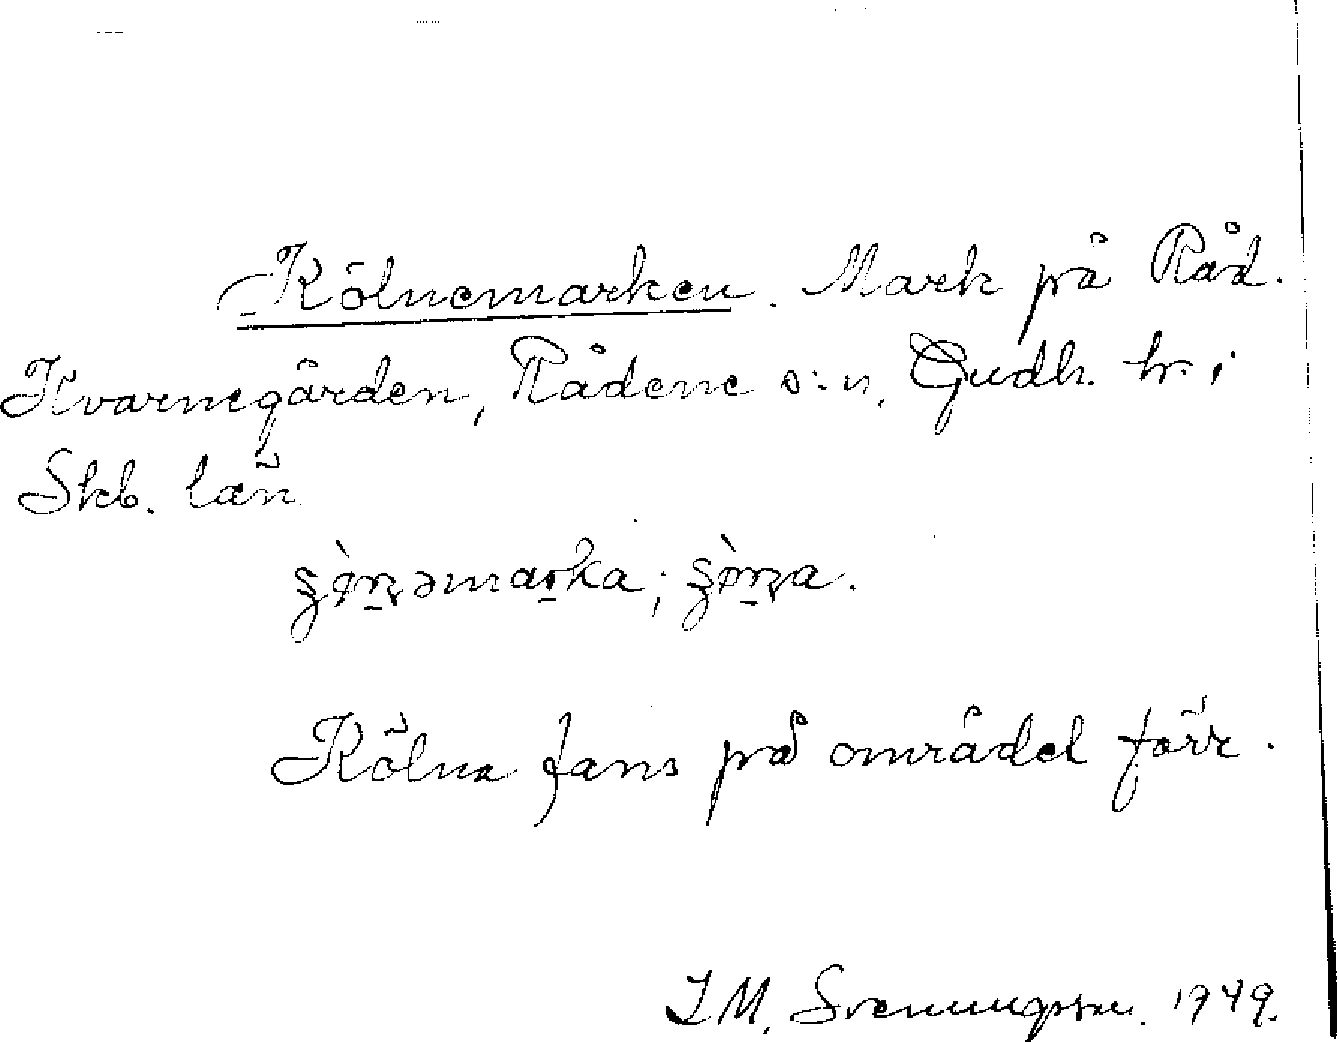 Kölnemarken. Mark på Råd.
Kvarnegården, Rådene s:n, Gudh. hr. i
Skb. län
Kölna fans på områdel förr.
I.M. Svenungsson. 1949.